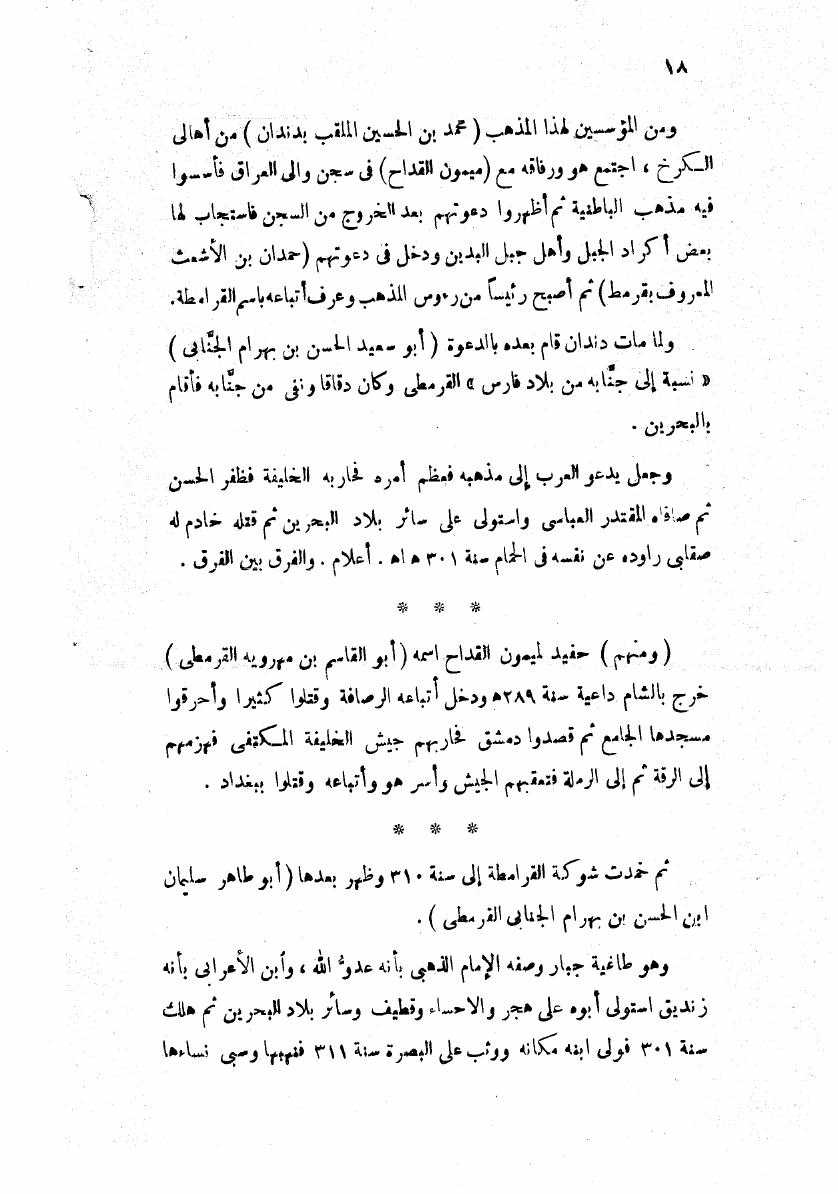 ١٨
ومن المؤسسين لهذا المذهب ( محمد بن الحسين الملقب بدندان ) من أهالى
الكرخ ، اجتمع هو ورفاقه مع (ميمون القداح) فى سجن والى العراق فأسسوا
فيه مذهب الباطنية ثم أظهروا دعوتهم بعد الخروج من السجن فاستجاب لها
بعض أكراد الجبل وأهل جبل البدين ودخل فى دعوتهم (حمدان بن الأشعث
المعروف بقرمط) ثم أصبح رئيساً من رءوس المذهب وعرف أتباعه باسم القرامطة.
ولما مات دندان قام بعده بالدعوة ( أبو سعيد الحسن بن بهرام الجنَّابى )
« نسبة إلى جنَّابه من بلاد فارس » القرمطى وكان دقاقا ونفى من جنَّابه فأقام
بالبحرين .
وجعل يدعو العرب إلى مذهبه فعظم أمره فحاربه الخليفة فظفر الحسن
ثم صافاه المقتدر العباسى واستولى على سائر بلاد البحرين ثم قتله خادم له
صقلبى راوده عن نفسه فى الحمام سنة ٣٠١ ه اه . أعلام . والفرق بين الفرق .
* * *
( ومنهم ) حفيد لميمون القداح اسمه ( أبو القاسم بن مهرويه القرمطى )
خرج بالشام داعية سنة ٢٨٩ه ودخل أتباعه الرصافة وقتلوا كثيرا وأحرقوا
مسجدها الجامع ثم قصدوا دمشق فحاربهم جيش الخليفة المكتفى فهزمهم
إلى الرقة ثم إلى الرملة فتعقبهم الجيش وأسر هو وأتباعه وقتلوا ببغداد .
* * *
ثم خمدت شوكة القرامطة إلى سنة ٣١٠ وظهر بعدها ( أبو طاهر سليمان
ابن الحسن بن بهرام الجنابى القرمطى ) .
وهو طاغية جبار وصفه الإمام الذهبى بأنه عدوُّ الله ، وأبن الأعرابى بأنه
زنديق استولى أبوه على هجر والاحساء وقطيف وسائر بلاد البحرين ثم هلك
سنة ٣٠١ فولى ابنه مكانه ووثب على البصرة سنة ٣١١ فنهبها وسبى نساءها